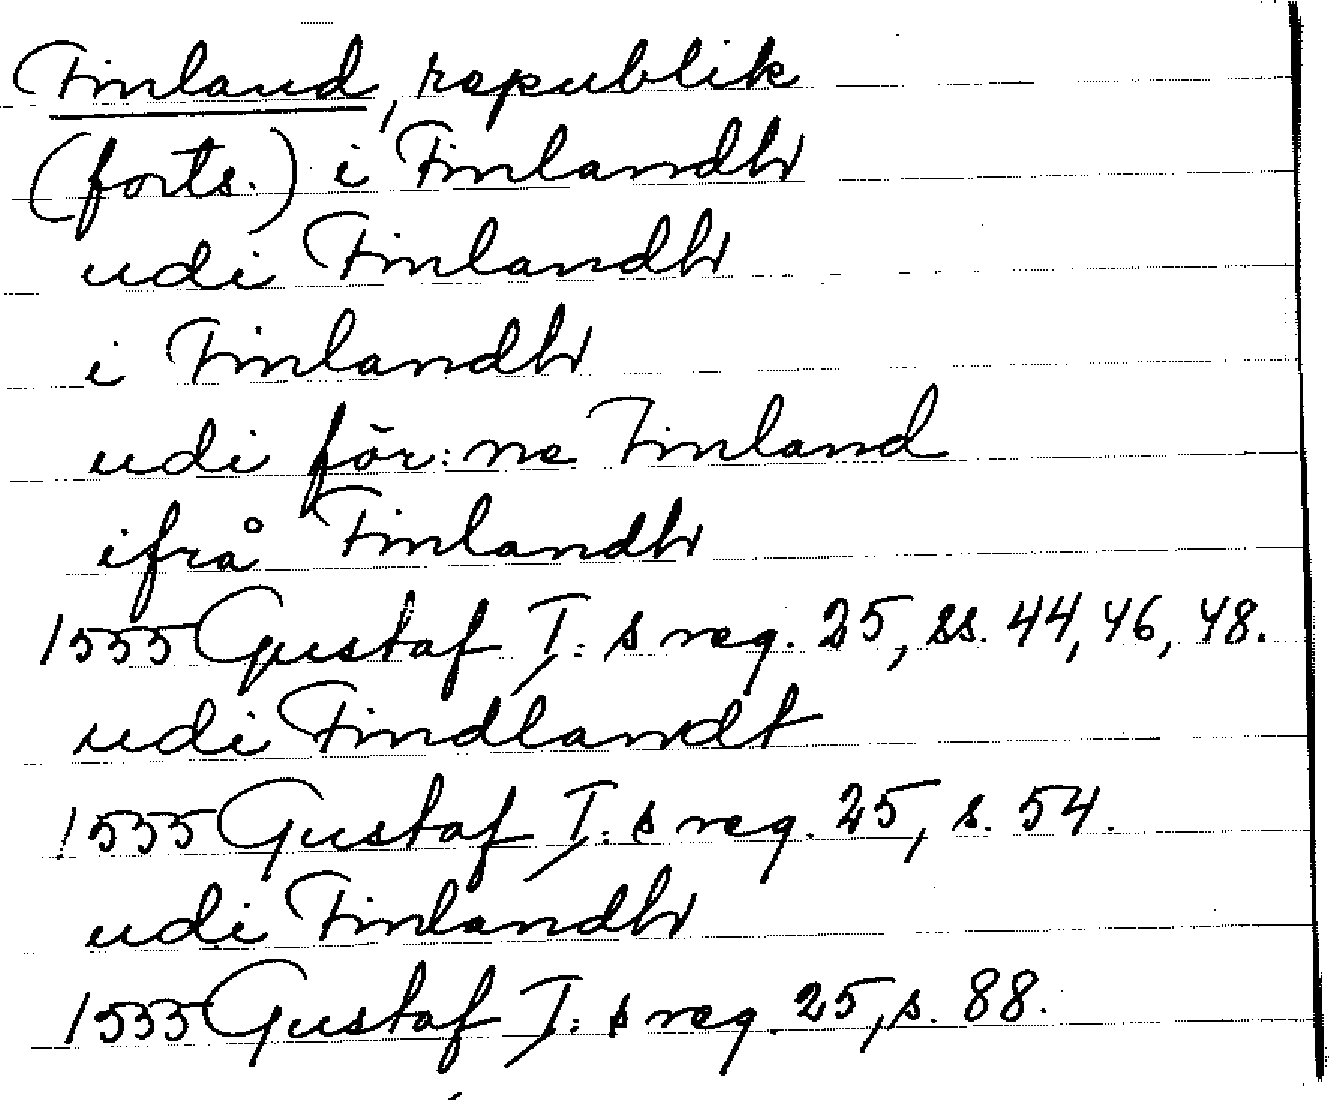 Finland, republik
(forts.) i Finlandh
udi Finlandh
i Finlandh
udi för:ne Finland
ifrå Finlandh
1555 Gustaf I:s reg. 25, ss. 44, 46, 48.
udi Findlandt
1555 Gustaf I:s reg. 25, s. 54.
udi Finlandh
1555 Gustaf I:s reg. 25, s. 88.